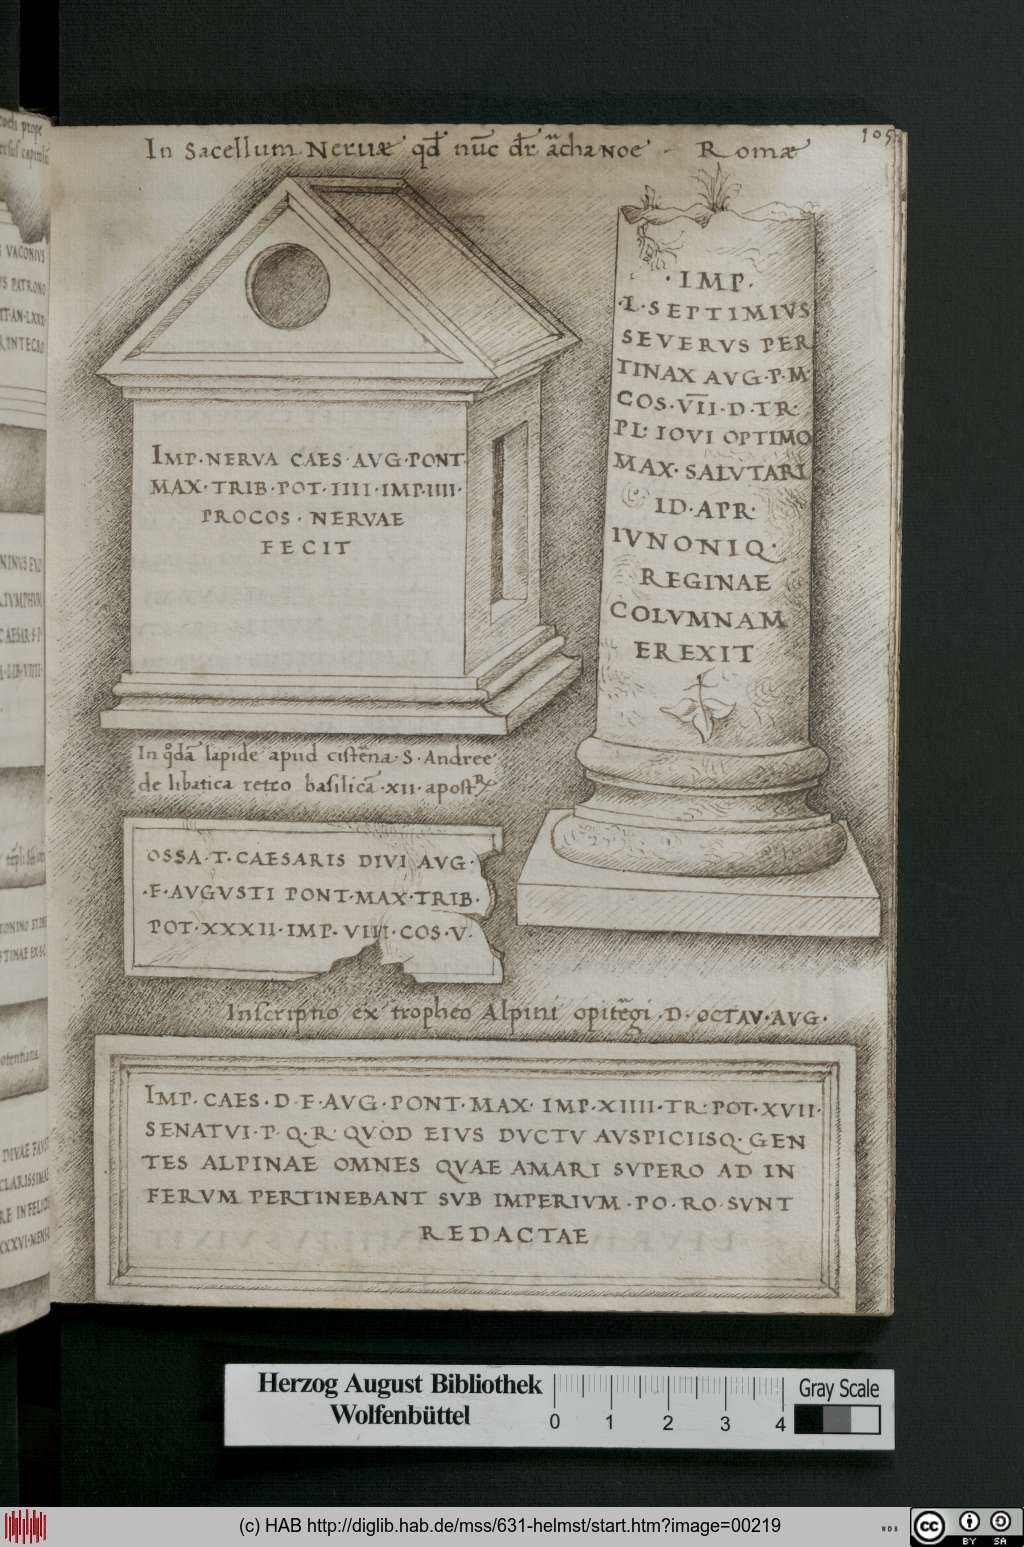 105
In Sacellum Neruæ qđ nūc dr̄ archa Noe - Romæ
IMP·NERVA CAES·AVG·PONT·
MAX·TRIB·POT·IIII·IMP·IIII·
PROCOS·NERVAE
FECIT
·IMP·
·L·SEPTIMIVS
SEVERVS PER
TINAX AVG·P·M·
COS·V̅I̅I·D·TR·
PL· IOVI OPTIMO
MAX·SALVTARI
ID·APR·
IVNONIQ·
REGINAE
COLVMNAM
EREXIT
In q̊dā lapide apud cistēna·S·Andree
de libatica retro basilicā·XII·apost
OSSA·T·CAESARIS DIVI AVG·
·F·AVGVSTI PONT·MAX·TRIB·
POT·XXXII·IMP·VIII·COS·V·
Inscriptio ex tropheo Alpini opitēgi·D·OCTAV·AVG·
IMP·CAES·D·F·AVG·PONT·MAX·IMP·XIIII·TR·POT·XVII·
SENATVI·P·Q·R·QVOD EIVS DVCTV AVSPICIISQ·GEN
TES ALPINAE OMNES QVAE AMARI SVPERO AD IN
FERVM PERTINEBANT SVB IMPERIVM·PO·RO·SVNT
REDACTAE
Herzog August Bibliothek
Wolfenbüttel
0 1 2 3 4
Gray Scale
(c) HAB http://diglib.hab.de/mss/631-helmst/start.htm?image=00219
cc BY SA